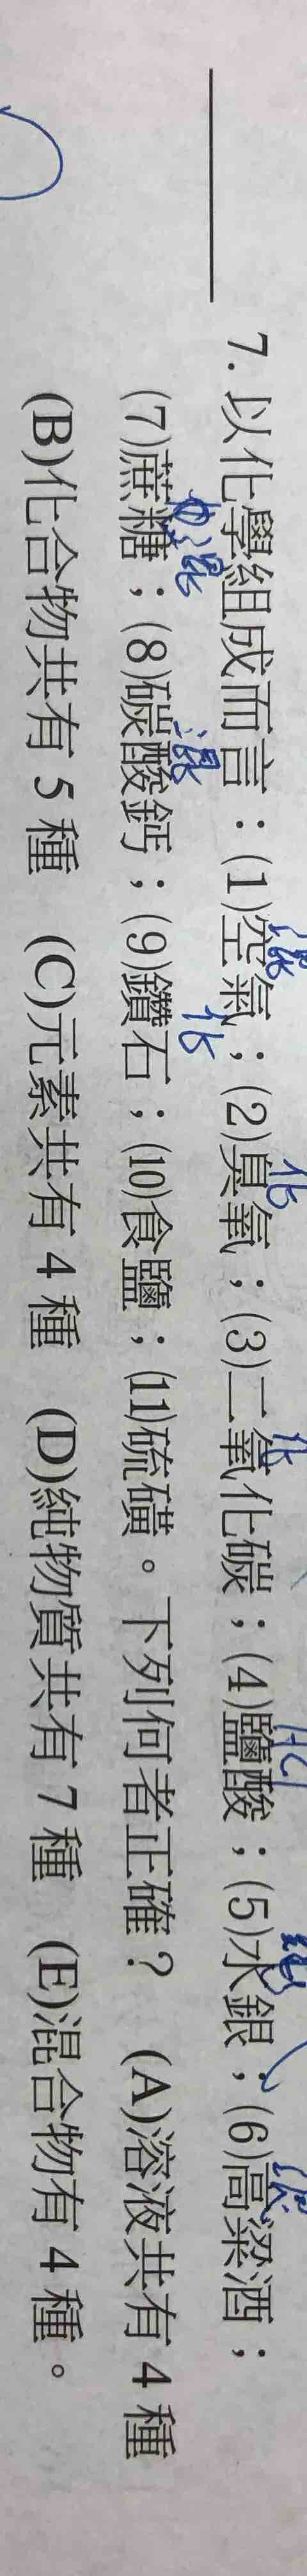 7. 以化學組成而言：(1)空氣；(2)臭氧；(3)二氧化碳；(4)鹽酸；(5)水銀；(6)高粱酒；
(7)蔗糖；(8)碳酸鈣；(9)鑽石；(10)食鹽；(11)硫磺。下列何者正確？ (A)溶液共有 4 種
(B)化合物共有 5 種 (C)元素共有 4 種 (D)純物質共有 7 種 (E)混合物有 4 種。
混
化
化
HCl
混
混
化